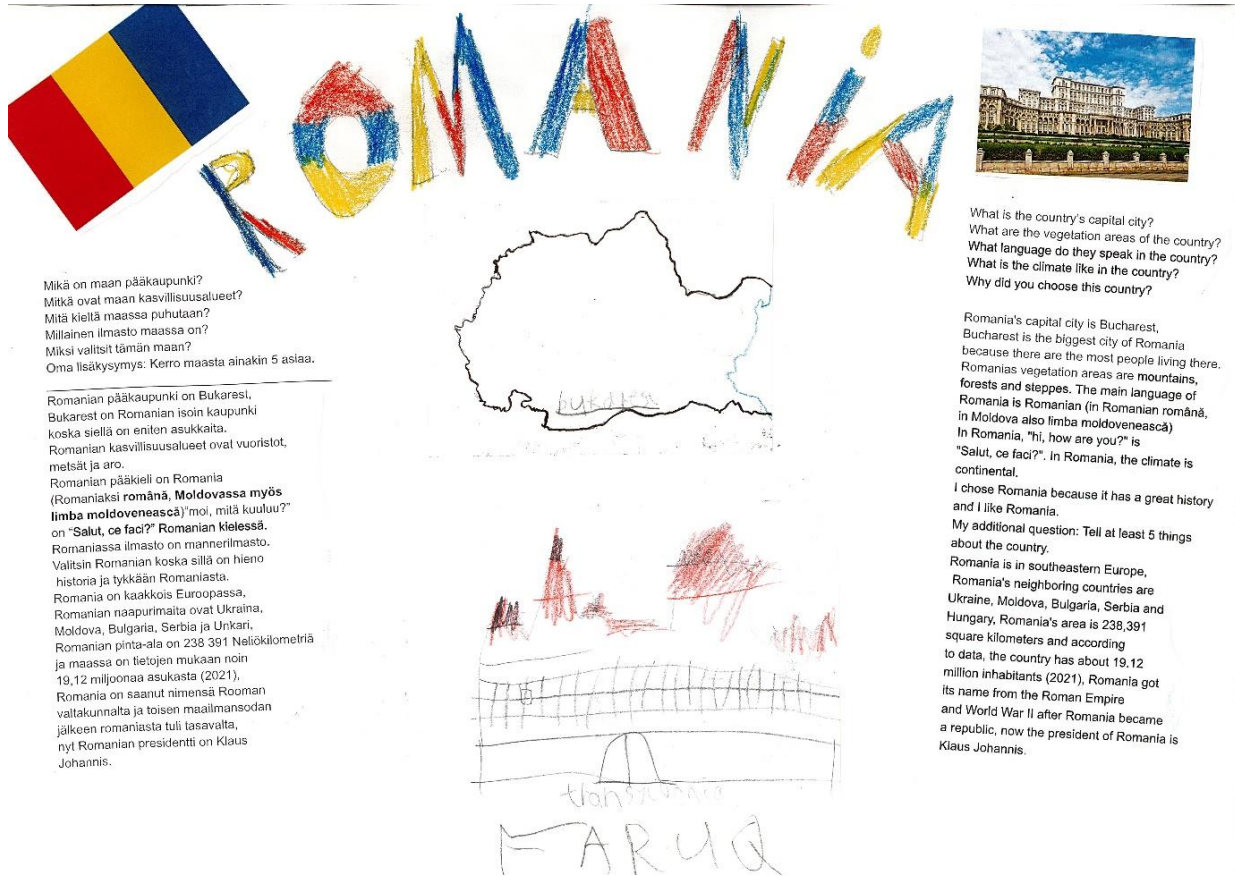 ROMANIA
Mikä on maan pääkaupunki?
Mitkä ovat maan kasvillisuusalueet?
Mitä kieltä maassa puhutaan?
Millainen ilmasto maassa on?
Miksi valitsit tämän maan?
Oma lisäkysymys: Kerro maasta ainakin 5 asiaa.
Romanian pääkaupunki on Bukarest,
Bukarest on Romanian isoin kaupunki
koska siellä on eniten asukkaita.
Romanian kasvillisuusalueet ovat vuoristot,
metsät ja aro.
Romanian pääkieli on Romania
(Romaniaksi română, Moldovassa myös
limba moldovenească)"moi, mitä kuuluu?"
on "Salut, ce faci?" Romanian kielessä.
Romaniassa ilmasto on mannerilmasto.
Valitsin Romanian koska sillä on hieno
historia ja tykkään Romaniasta.
Romania on kaakkois Euroopassa,
Romanian naapurimaita ovat Ukraina,
Moldova, Bulgaria, Serbia ja Unkari,
Romanian pinta-ala on 238 391 Neliökilometriä
ja maassa on tietojen mukaan noin
19,12 miljoonaa asukasta (2021),
Romania on saanut nimensä Rooman
valtakunnalta ja toisen maailmansodan
jälkeen romaniasta tuli tasavalta,
nyt Romanian presidentti on Klaus
Johannis.
bukarest
transylvania
FARUQ
What is the country's capital city?
What are the vegetation areas of the country?
What language do they speak in the country?
What is the climate like in the country?
Why did you choose this country?
Romania's capital city is Bucharest,
Bucharest is the biggest city of Romania
because there are the most people living there.
Romanias vegetation areas are mountains,
forests and steppes. The main language of
Romania is Romanian (in Romanian română,
in Moldova also limba moldovenească)
In Romania, "hi, how are you?" is
"Salut, ce faci?". In Romania, the climate is
continental.
I chose Romania because it has a great history
and I like Romania.
My additional question: Tell at least 5 things
about the country.
Romania is in southeastern Europe,
Romania's neighboring countries are
Ukraine, Moldova, Bulgaria, Serbia and
Hungary, Romania's area is 238,391
square kilometers and according
to data, the country has about 19.12
million inhabitants (2021), Romania got
its name from the Roman Empire
and World War II after Romania became
a republic, now the president of Romania is
Klaus Johannis.